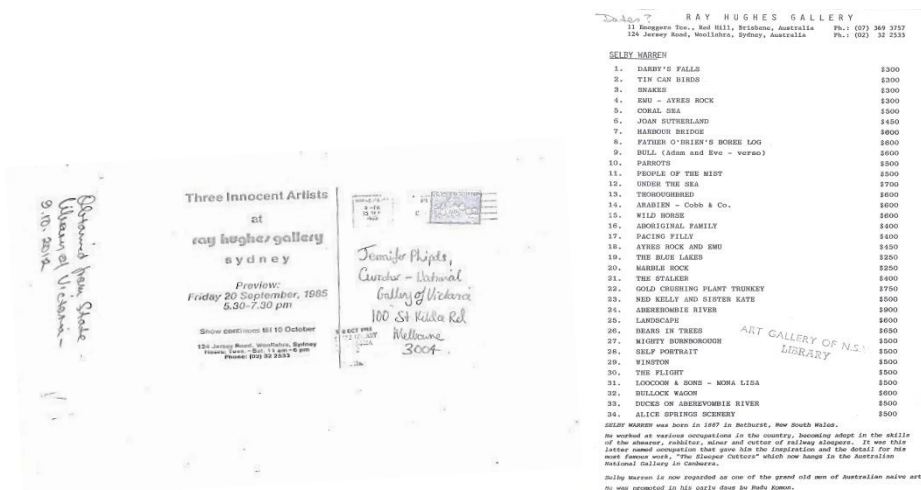 Obtained from State
Library of Victoria -
9.10.2012
Three Innocent Artists
at
ray hughes gallery
sydney
Preview:
Friday 20 September, 1985
5.30-7.30 pm
Show continues till 10 October
124 Jersey Road, Woollahra, Sydney
Hours: Tues. - Sat. 11 am - 6 pm
Phone: (02) 32 2533
Jennifer Phipps,
Curator - National
Gallery of Victoria
100 St Kilda Rd
Melbourne
3004.
Dates?
RAY HUGHES GALLERY
11 Enoggera Tce., Red Hill, Brisbane, Australia Ph.: (07) 369 3757
124 Jersey Road, Woollahra, Sydney, Australia Ph.: (02) 32 2533
SELBY WARREN
1. DARBY'S FALLS $300
2. TIN CAN BIRDS $300
3. SNAKES $300
4. EMU - AYRES ROCK $300
5. CORAL SEA $500
6. JOAN SUTHERLAND $450
7. HARBOUR BRIDGE $600
8. FATHER O'BRIEN'S BOREE LOG $600
9. BULL (Adam and Eve - verso) $600
10. PARROTS $500
11. PEOPLE OF THE MIST $500
12. UNDER THE SEA $700
13. THOROUGHBRED $600
14. ARABIEN - Cobb & Co. $600
15. WILD HORSE $600
16. ABORIGINAL FAMILY $400
17. PACING FILLY $400
18. AYRES ROCK AND EMU $450
19. THE BLUE LAKES $250
20. MARBLE ROCK $250
21. THE STALKER $400
22. GOLD CRUSHING PLANT TRUNKEY $750
23. NED KELLY AND SISTER KATE $500
24. ABEREOMBIE RIVER $900
25. LANDSCAPE $600
26. BEARS IN TREES $650
27. MIGHTY BURNBOROUGH $500
28. SELF PORTRAIT $500
29. WINSTON $500
30. THE FLIGHT $500
31. LOOCOON & SONS - MONA LISA $500
32. BULLOCK WAGON $600
33. DUCKS ON ABEREVOMBIE RIVER $500
34. ALICE SPRINGS SCENERY $500
ART GALLERY OF N.S.W.
LIBRARY
SELBY WARREN was born in 1887 in Bathurst, New South Wales.
He worked at various occupations in the country, becoming adept in the skills
of the shearer, rabbiter, miner and cutter of railway sleepers. It was this
latter named occupation that gave him the inspiration and the detail for his
most famous work, "The Sleeper Cutters" which now hangs in the Australian
National Gallery in Canberra.
Selby Warren is now regarded as one of the grand old men of Australian naive art
He was promoted in his early days by Rudy Komon.